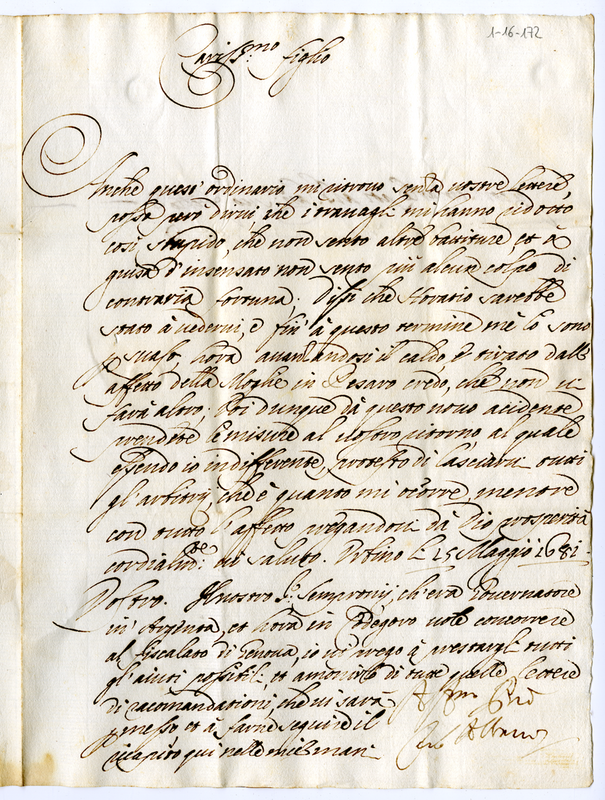 1-16-172
Cariss.mo figlio
Anche quest'ordinario mi ritrovo senza vostre lettere,
posso però dirvi, che i travagli mi hanno ridotto
così stupido, che non sento altre battiture, et à
guisa d'insensato non sento più alcun colpo di
contraria fortuna; Dissi che Horatio sarebbe
stato à vedervi, e fin' à questo termine mè lo sono
p suaso, hora avanzandosi il caldo, e tirato dall'
affetto della Moglie in Pesaro credo, che non vi
sarà altro; Voi dunque dà questo novo accidente
prendete le misure al vostro ritorno al quale
essendo io indifferente, protesto di lasciarvi tutti
gl'arbitrij che è quanto mi occorre, mentre
con tutto l'affetto pregandovi dà Dio prosperità
cordialm.te vi saluto. Urbino li 15 Maggio 1681.
Il nostro S.r Sempronij, ch'era Governatore
in Argenta, et hora in vole concorrere
al fiscalato di Genova, io vi prego à prestargli tutti
gl'aiuti possibili, et amonirlo di tutte quelle lettere
di racomandationi, che vi sarà
p messo et à farne seguire il
ricapito qui nelle mie mani.